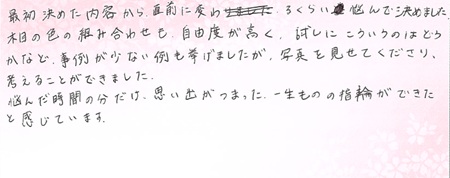 最初 決めた内容から直前に変わるくらい悩んで決めました。
木目の色の組み合わせも、自由度が高く、試しにこういうのはどう
かなど、事例が少ない例も挙げましたが、写真を見せてくださり、
考えることができました。
悩んだ時間の分だけ、思い出がつまった、一生ものの指輪ができた
と感じています。